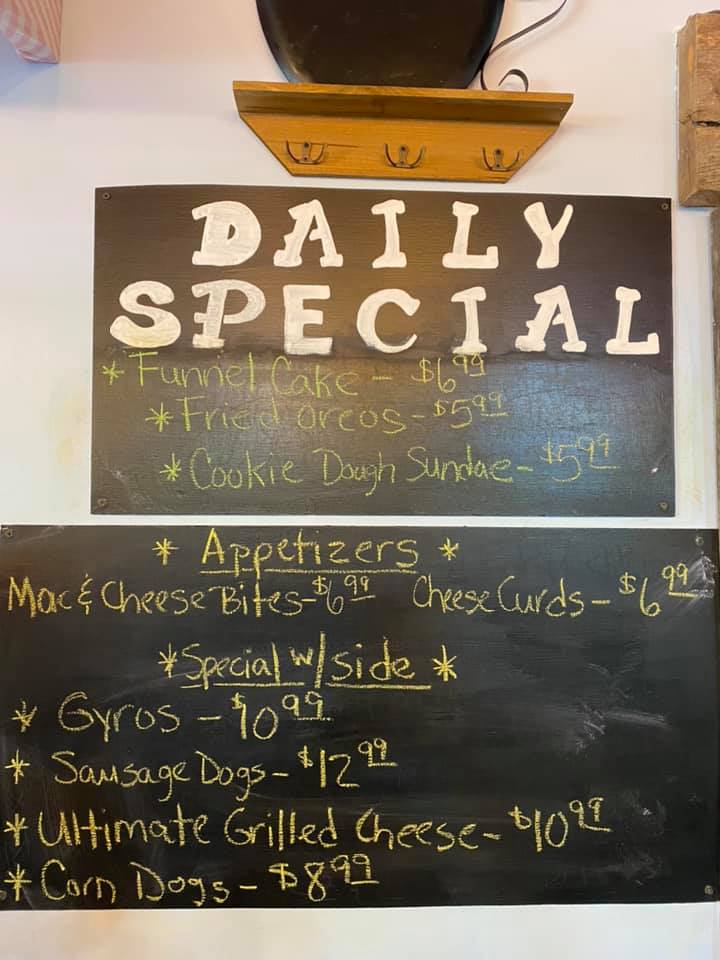 DAILY
SPECIAL
* Funnel Cake - $6.99
* Fried oreos - $5.99
* Cookie Dough Sundae - $5.99
* Appetizers *
Mac & Cheese Bites - $6.99 Cheese Curds - $6.99
* Special w/ side *
* Gyros - $10.99
* Sausage Dogs - $12.99
* Ultimate Grilled Cheese - $10.99
* Corn Dogs - $8.99